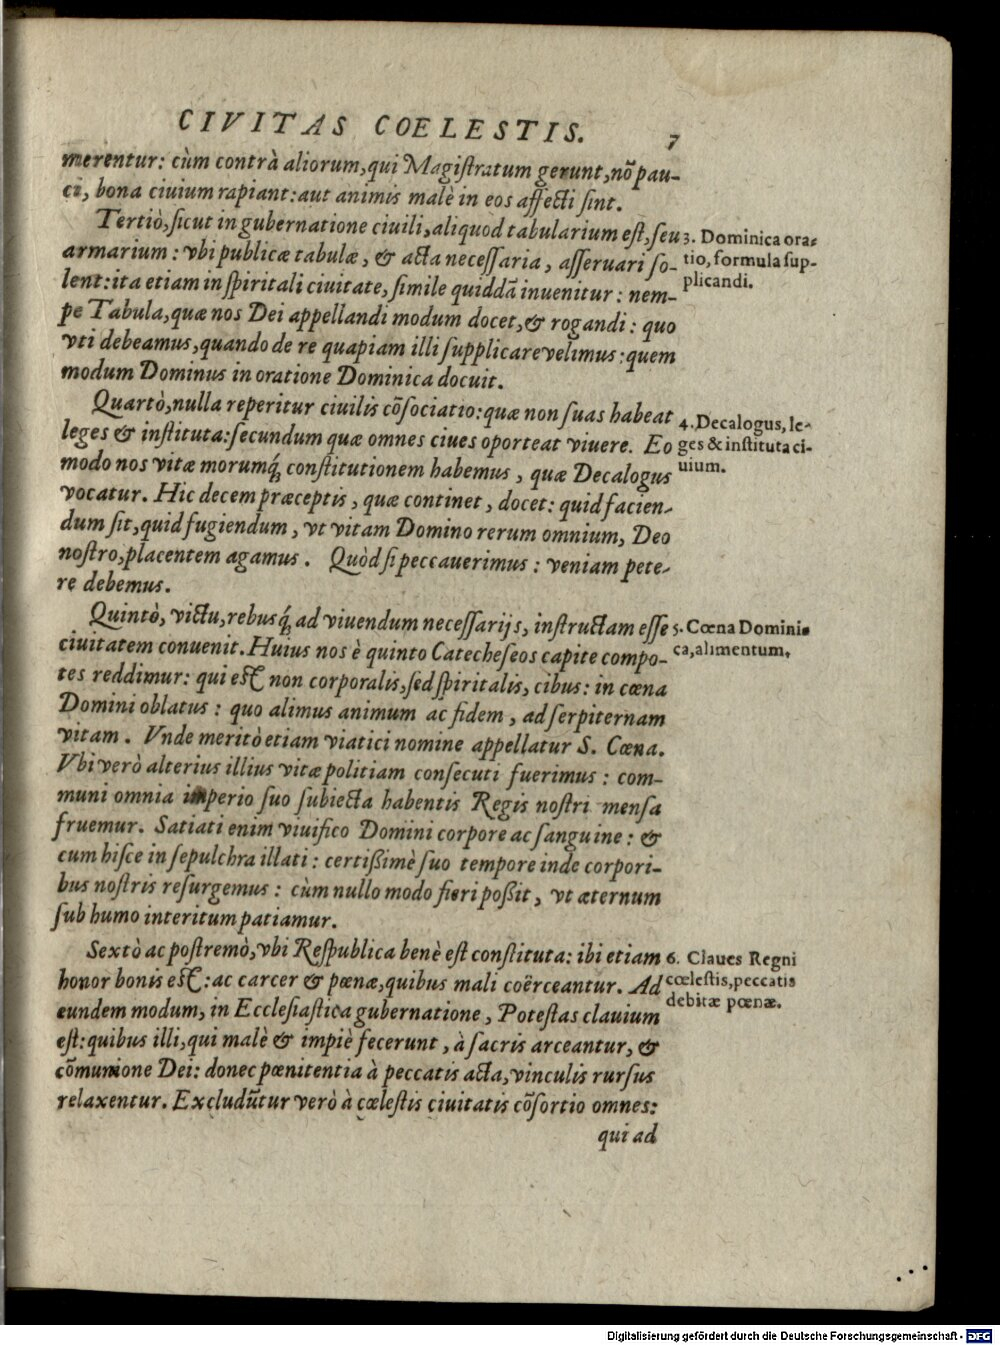 CIVITAS COELESTIS. 7
merentur: cùm contrà aliorum, qui Magiſtratum gerunt, nõ pau-
ci, bona ciuium rapiant: aut animis malè in eos affecti ſint.
Tertiò, ſicut in gubernatione ciuili, aliquod tabularium eſt, ſeu
armarium: vbi publicæ tabulæ, & acta neceſſaria, aſſeruari ſo-
lent: ita etiam in ſpiritali ciuitate, ſimile quiddã inuenitur: nem-
pe Tabula, quæ nos Dei appellandi modum docet, & rogandi: quo
vti debeamus, quando de re quapiam illi ſupplicare velimus: quem
modum Dominus in oratione Dominica docuit.
3. Dominica ora-
tio, formula ſup-
plicandi.
Quartò, nulla reperitur ciuilis cõſociatio: quæ non ſuas habeat
leges & inſtituta: ſecundum quæ omnes ciues oporteat viuere. Eo
modo nos vitæ morumq́; conſtitutionem habemus, quæ Decalogus
vocatur. Hic decem præceptis, quæ continet, docet: quid facien-
dum ſit, quid fugiendum, vt vitam Domino rerum omnium, Deo
noſtro, placentem agamus. Quòd ſi peccauerimus: veniam pete-
re debemus.
4. Decalogus, le-
ges & inſtituta ci-
uium.
Quintò, victu, rebusq́; ad viuendum neceſſarijs, inſtructam eſſe
ciuitatem conuenit. Huius nos è quinto Catecheſeos capite compo-
tes reddimur: qui eſt non corporalis, ſed ſpiritalis, cibus: in cœna
Domini oblatus: quo alimus animum ac fidem, ad ſerpiternam
vitam. Vnde meritò etiam viatici nomine appellatur S. Cœna.
Vbi verò alterius illius vitæ politiam conſecuti fuerimus: com-
muni omnia imperio ſuo ſubiecta habentis Regis noſtri menſa
fruemur. Satiati enim viuifico Domini corpore ac ſanguine: &
cum hiſce in ſepulchra illati: certißimè ſuo tempore inde corpori-
bus noſtris reſurgemus: cùm nullo modo fieri poßit, vt æternum
ſub humo interitum patiamur.
5. Cœna Domini-
ca, alimentum.
Sextò ac poſtremò, vbi Reſpublica benè eſt conſtituta: ibi etiam
honor bonis eſt: ac carcer & pœnæ, quibus mali coërceantur. Ad
eundem modum, in Eccleſiaſtica gubernatione, Poteſtas clauium
eſt: quibus illi, qui malè & impiè fecerunt, à ſacris arceantur, &
cõmunione Dei: donec pœnitentia à peccatis acta, vinculis rurſus
relaxentur. Excludũtur verò à cœleſtis ciuitatis cõſortio omnes:
6. Claues Regni
cœleſtis, peccatis
debitæ pœnæ.
qui ad
Digitalisierung gefördert durch die Deutsche Forschungsgemeinschaft - DFG